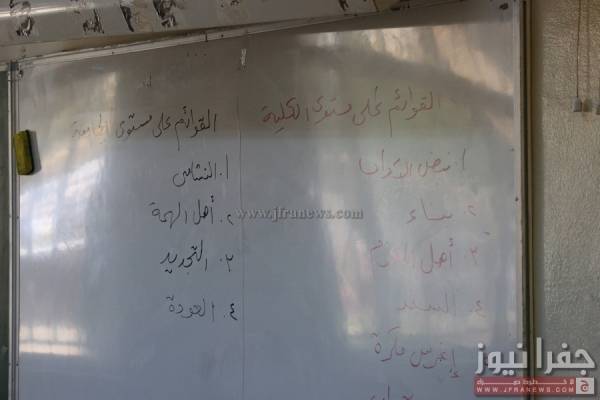 القوائم على مستوى الكلية
١. نبض
٢. سناء
٣. أهل العزم
٤. السند
إغرس فكرة
القوائم على مستوى الجامعة
١. النشامى
٢. أهل الهمة
٣. التجديد
٤. العودة
www.jfranews.com
جفرا نيوز
WWW.JFRANEWS.COM